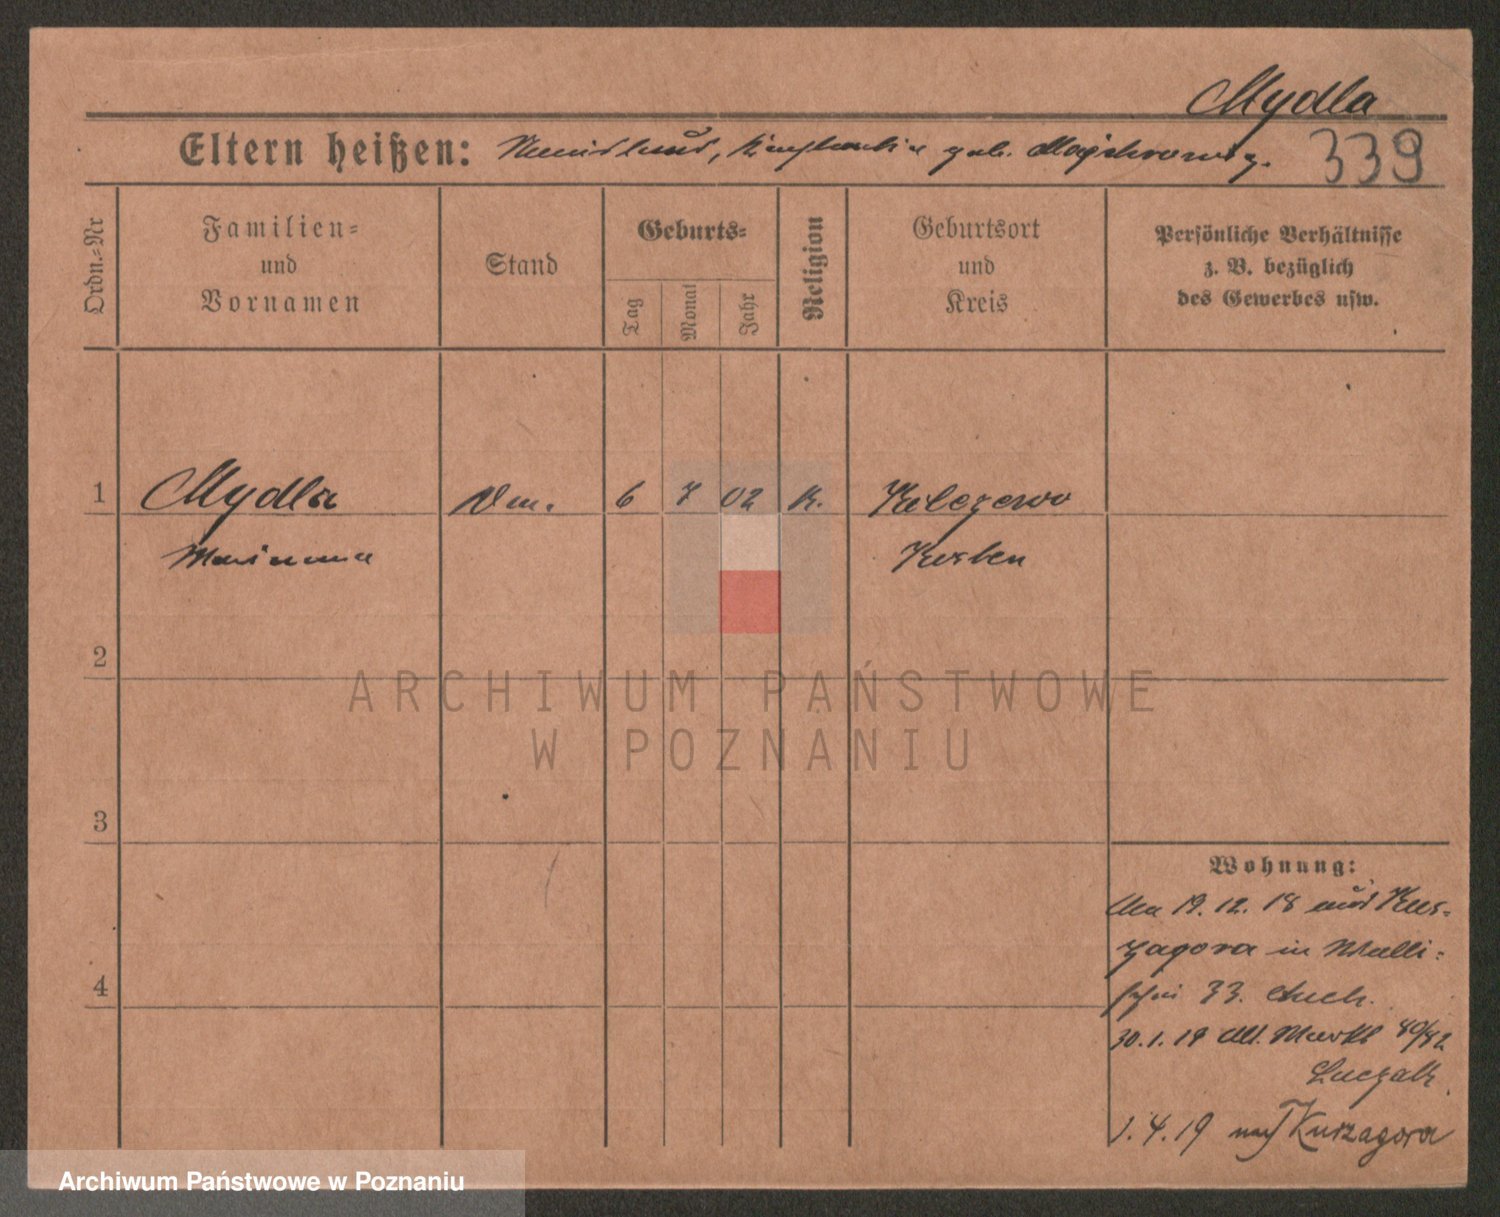 Mydla
Eltern heißen: geb.
339
Ordn.-Nr
Familien-
und
Vornamen
Stand
Geburts-
Tag
Monat
Jahr
Religion
Geburtsort
und
Kreis
Persönliche Verhältnisse
z. B. bezüglich
des Gewerbes usw.
1 Mydla 6 7 02 K.
Marianna Kosten
2
3
4
ARCHIWUM PAŃSTWOWE
W POZNANIU
Wohnung:
19. 12. 18 aus
zagora in Walli-
schei 33.
30.1.19 Alt. Markt 80/82
Luczak
1.4.19 nach Kurzagora
Archiwum Państwowe w Poznaniu